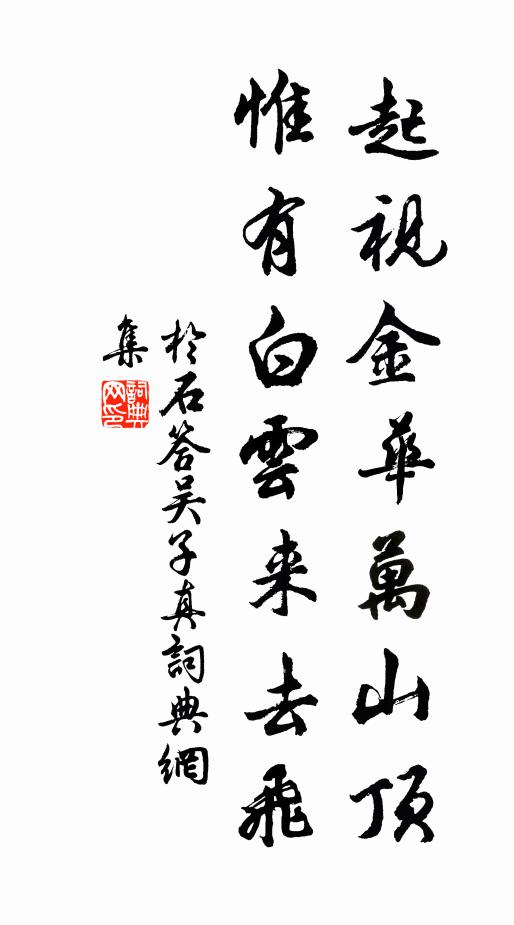 起視金華萬山頂
惟有白雲来去飛
於石答吴子真詞典網
集
詞典网印